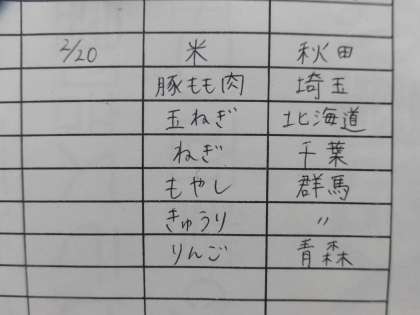 2/20 米 秋田
豚もも肉 埼玉
玉ねぎ 北海道
ねぎ 千葉
もやし 群馬
きゅうり 〃
りんご 青森